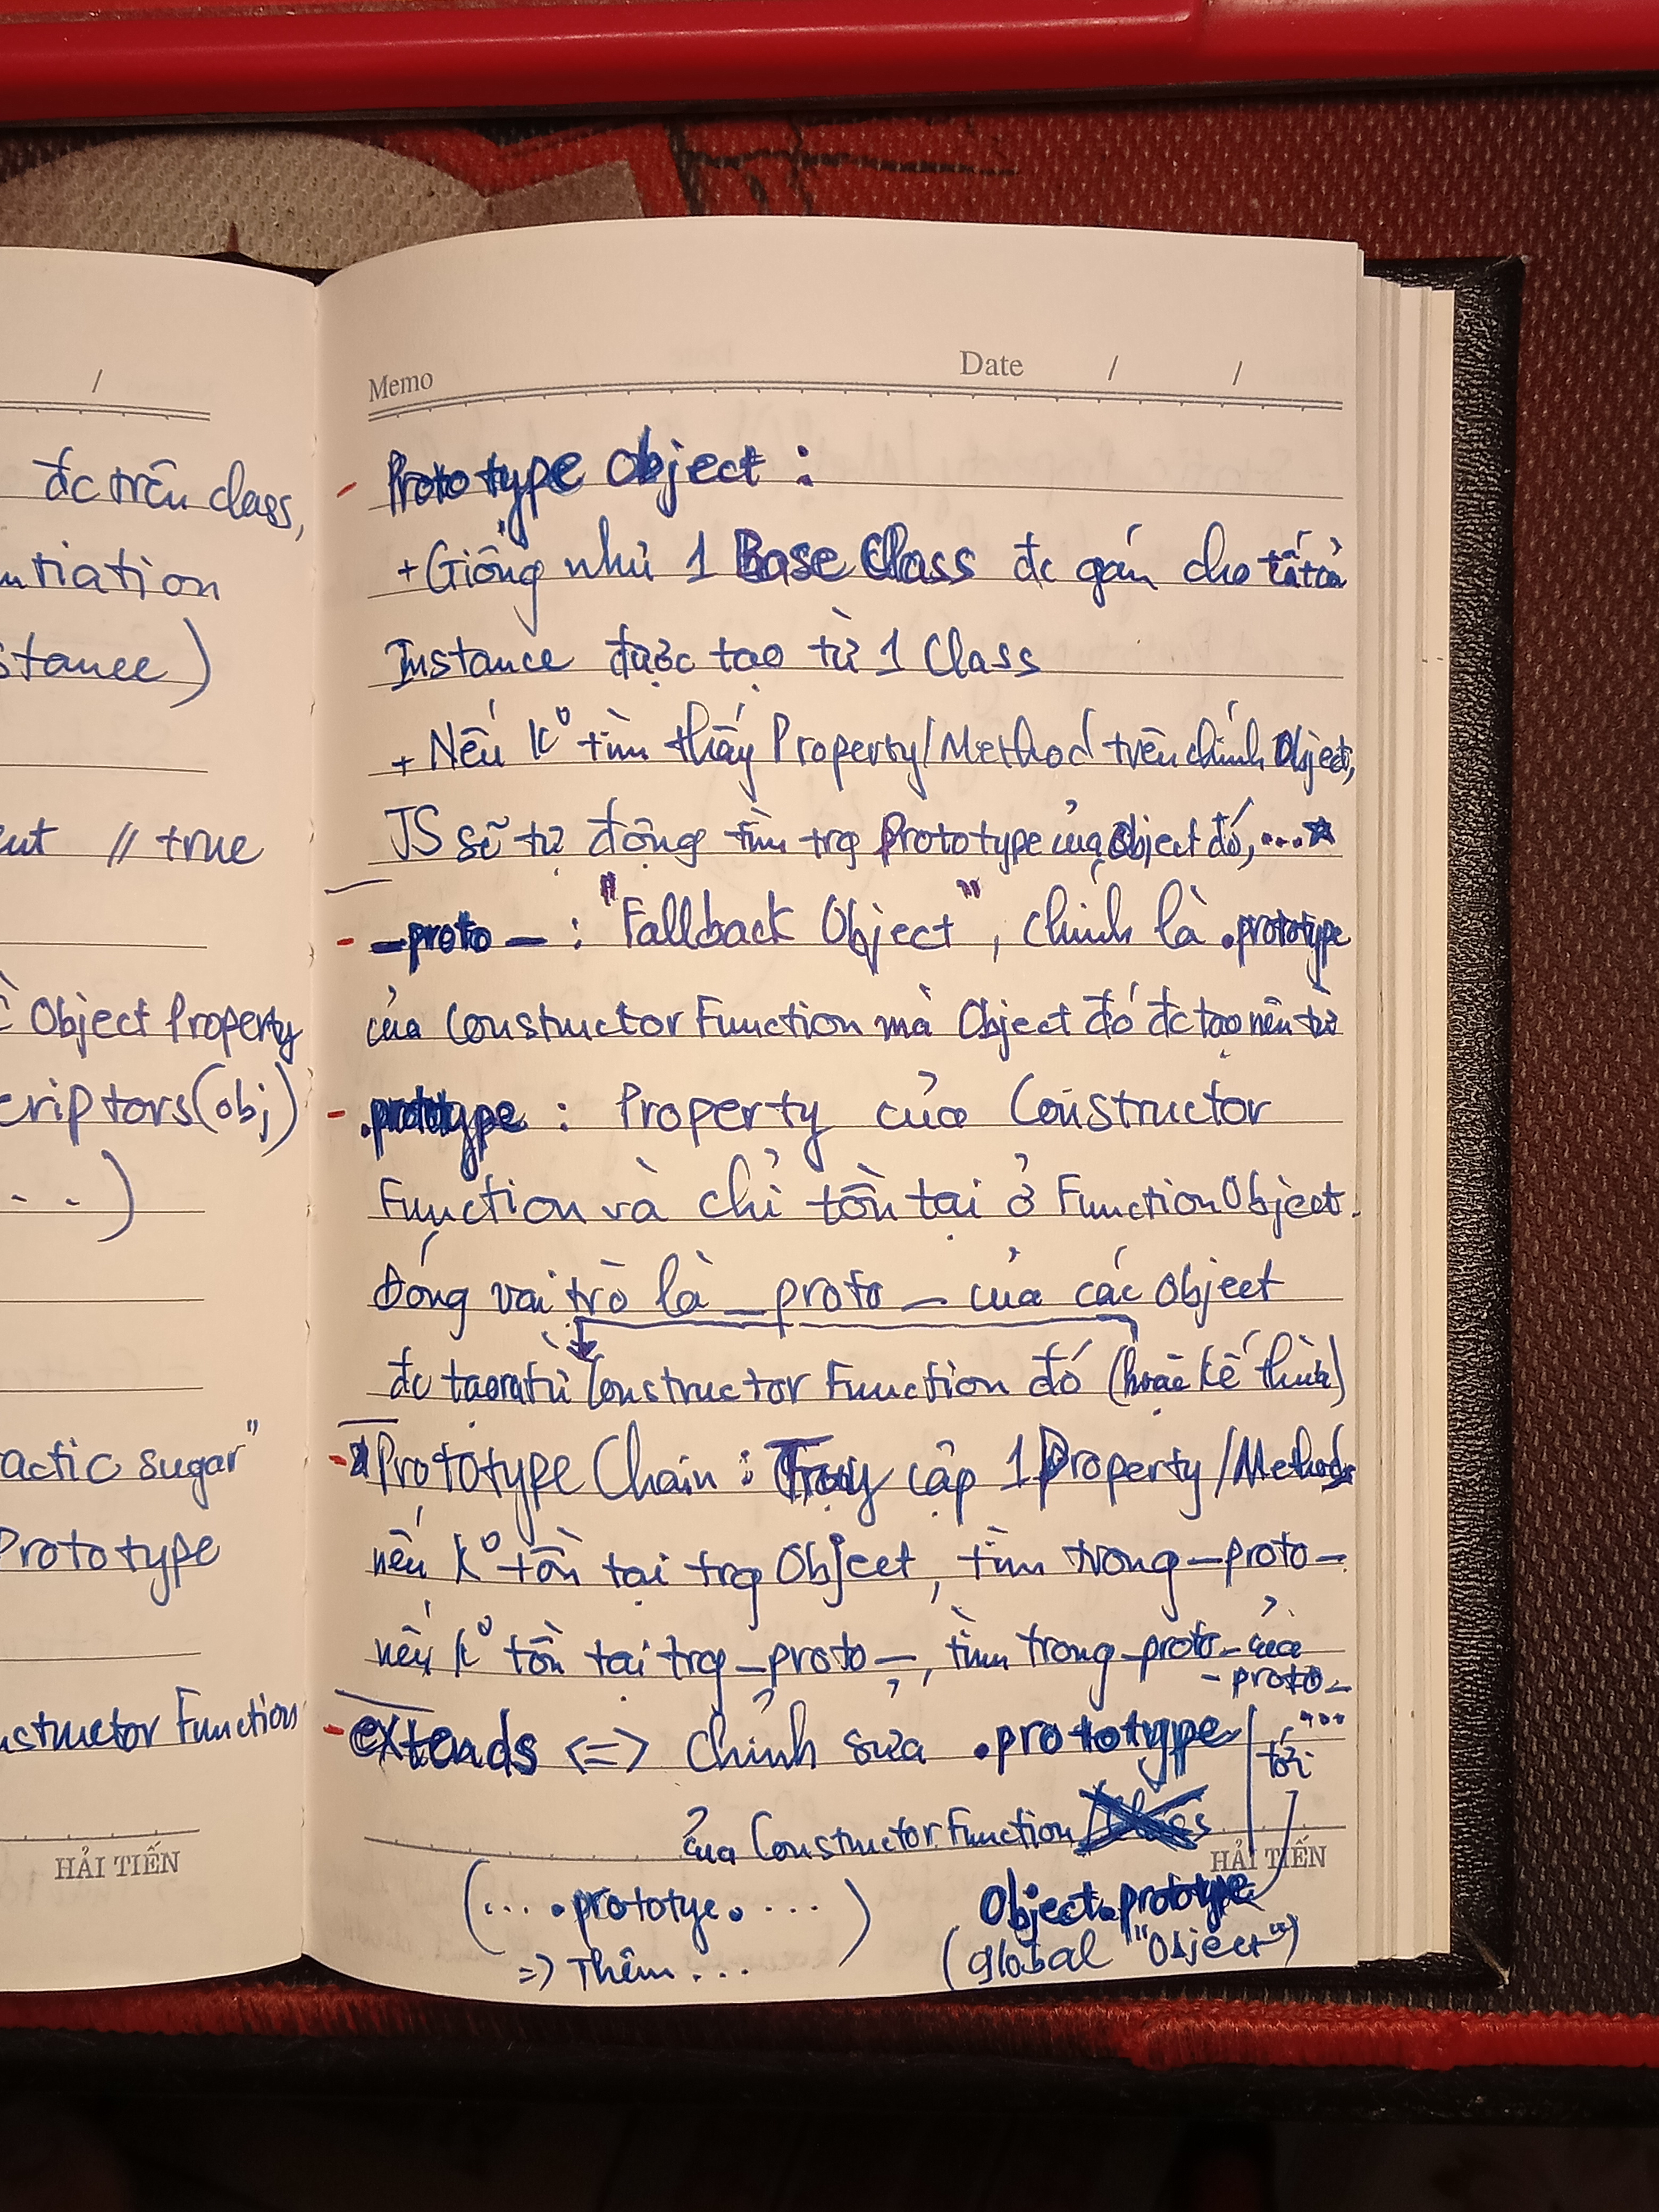 /
đc trên class,
ntiation
stance)
ent // true
Object Property
criptors(obj)
...)
actic sugar"
Prototype
nstructor Function
HẢI TIẾN
Memo Date / /
- Prototype Object :
+ Giống như 1 Base Class đc gán cho tất cả
Instance được tạo từ 1 Class
+ Nếu k° tìm thấy Property/Method trên chính Object,
JS sẽ tự động tìm trg Prototype của Object đó, ...☆
- _proto_ : "Fallback Object", chính là .prototype
của Constructor Function mà Object đó đc tạo nên từ
- .prototype : Property của Constructor
Function và chỉ tồn tại ở Function Object.
Đóng vai trò là _proto_ của các Object
đc tạo ra từ Constructor Function đó (hoặc kế thừa)
- Prototype Chain : Truy cập 1 Property/Methods
nếu k° tồn tại trg Object, tìm trong _proto_
nếu k° tồn tại trg _proto_, tìm trong _proto_ của
_proto_
...
- extends <=> Chỉnh sửa .prototype
tới
của Constructor Function
HẢI TIẾN
(... .prototye. ...)
=> Thêm ...
Object.prototype
(global "Object")